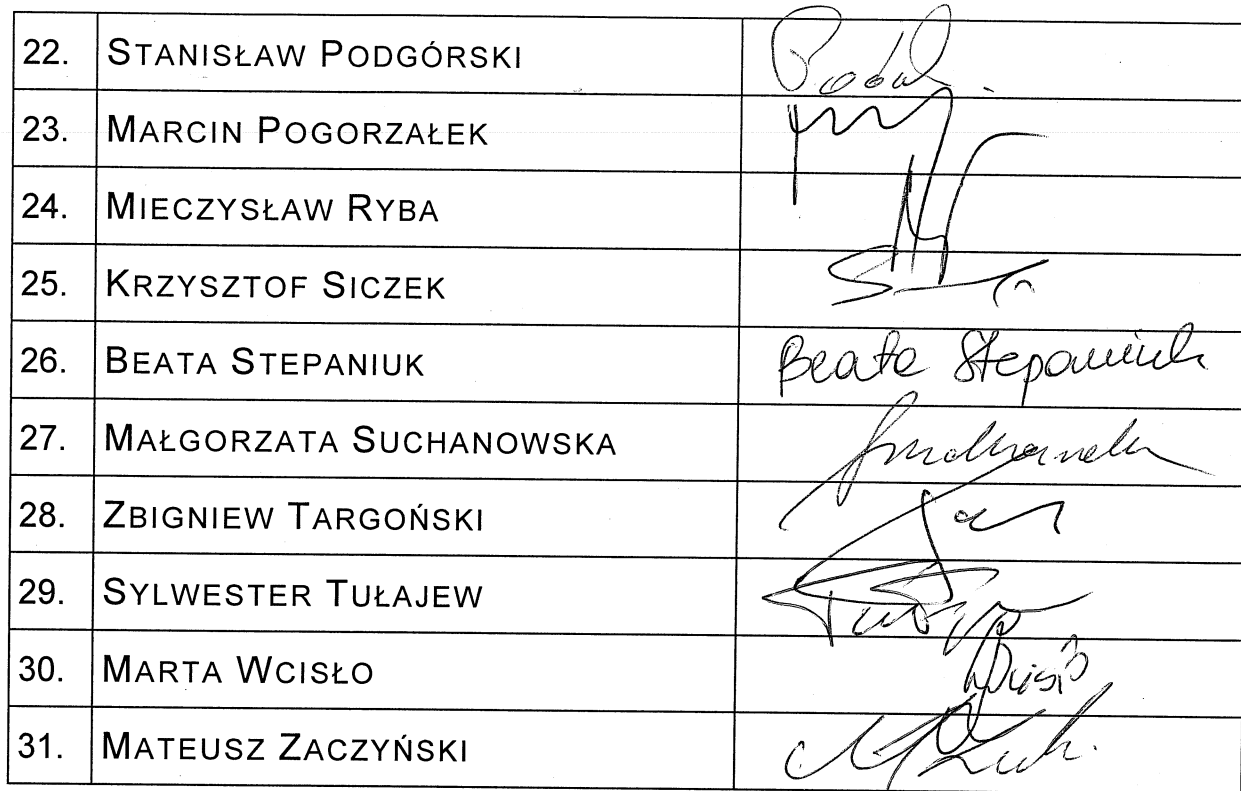 22. STANISŁAW PODGÓRSKI
23. MARCIN POGORZAŁEK
24. MIECZYSŁAW RYBA
25. KRZYSZTOF SICZEK
26. BEATA STEPANIUK Beata Stepaniuk
27. MAŁGORZATA SUCHANOWSKA
28. ZBIGNIEW TARGOŃSKI
29. SYLWESTER TUŁAJEW
30. MARTA WCISŁO
31. MATEUSZ ZACZYŃSKI